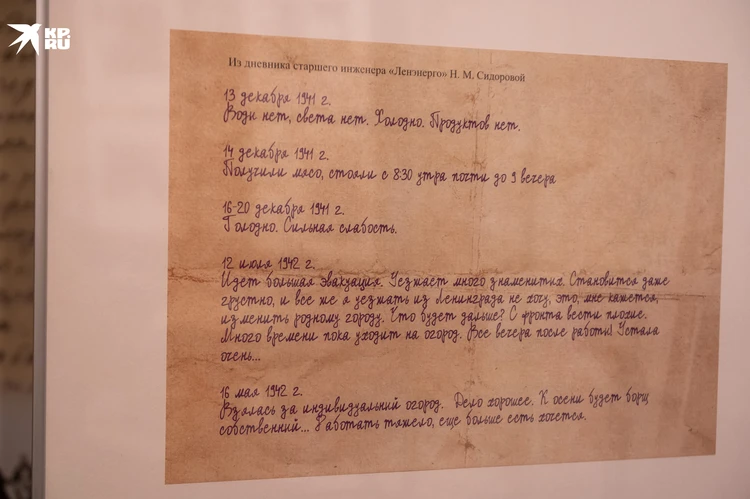 KP.RU
Из дневника старшего инженера «Ленэнерго» Н. М. Сидоровой
13 декабря 1941 г.
Воды нет, света нет. Холодно. Продуктов нет.
14 декабря 1941 г.
Получили мясо, стояли с 8:30 утра почти до 9 вечера
16-20 декабря 1941 г.
Голодно. Сильная слабость.
12 июля 1942 г.
Идет большая эвакуация. Уезжает много знаменитых. Становится даже
грустно, и все же я уезжать из Ленинграда не хочу, это, мне кажется,
изменить родному городу. Что будет дальше? С фронта вести плохие.
Много времени пока уходит на огород. Все вечера после работы! Устала
очень...
16 мая 1942 г.
Взялась за индивидуальный огород. Дело хорошее. К осени будет борщ
собственный... Работать тяжело, еще больше есть хочется.